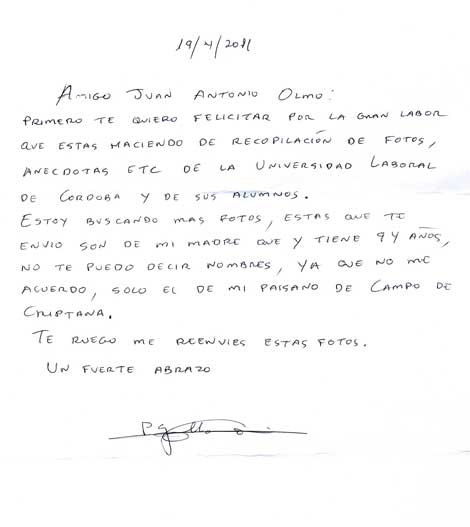 19/4/2011
AMIGO JUAN ANTONIO OLMO:
PRIMERO TE QUIERO FELICITAR POR LA GRAN LABOR
QUE ESTAS HACIENDO DE RECOPILACIÓN DE FOTOS,
ANECDOTAS ETC DE LA UNIVERSIDAD LABORAL
DE CORDOBA Y DE SUS ALUMNOS.
ESTOY BUSCANDO MAS FOTOS, ESTAS QUE TE
ENVIO SON DE MI MADRE QUE Y TIENE 94 AÑOS,
NO TE PUEDO DECIR NOMBRES, YA QUE NO ME
ACUERDO, SOLO EL DE MI PAISANO DE CAMPO DE
CRIPTANA.
TE RUEGO ME REENVIES ESTAS FOTOS.
UN FUERTE ABRAZO